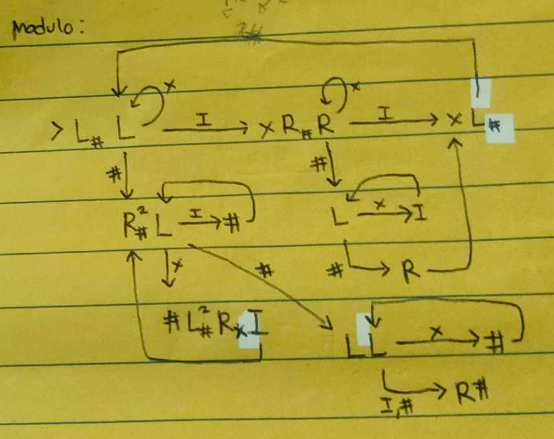 Modulo:
x x
> L# L I x R# R I x L#
# #
R²# L I # L x I
x # # R
# L²# R x I L L x #
I,# R#